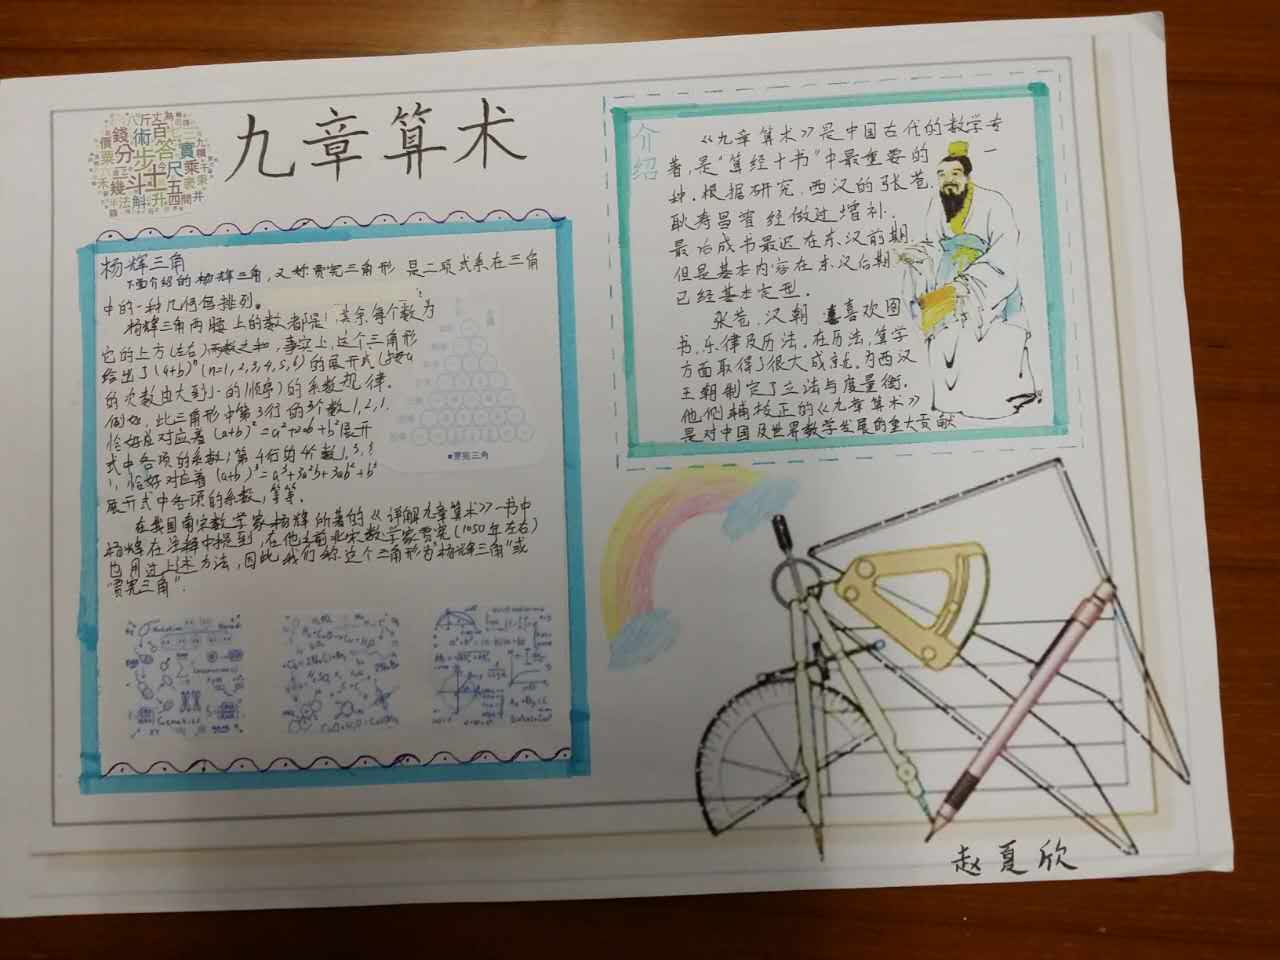 九章算术
杨辉三角
下面介绍的杨辉三角，又称贾宪三角形 是二项式系在三角
中的一种几何包排列。
杨辉三角两腰上的数都是1 其余每个数为
它的上方(左右)两数之和，事实上，这个三角形
给出了(a+b)ⁿ(n=1,2,3,4,5,6)的展开式(按a
的次数由大到小的顺序)的系数规律.
例如，此三角形中第3行的3个数1,2,1.
恰好对应着 (a+b)²=a²+2ab+b²展开
式中各项的系数；第4行的4个数1,3,3
1，恰好对应着 (a+b)³=a³+3a²b+3ab²+b³
展开式中各项的系数，等等.
在我国南宋数学家杨辉所著的《详解九章算术》一书中
杨辉在注释中提到,在他之前北宋数学家贾宪(1050年左右)
也用过上述方法，因此我们称这个三角形为"杨辉三角"或
"贾宪三角".
■贾宪三角
介绍
《九章算术》是中国古代的数学专
著,是"算经十书"中最重要的一
种.根据研究,西汉的张苍.
耿寿昌曾经做过增补.
最后成书最迟在东汉前期.
但是基本内容在东汉后期
已经基本定型.
张苍.汉朝 喜欢图
书.乐律及历法.在历法,算学
方面取得了很大成就.为西汉
王朝制定了立法与度量衡.
他们辅校正的《九章算术》
是对中国及世界数学发展的重大贡献
赵夏欣